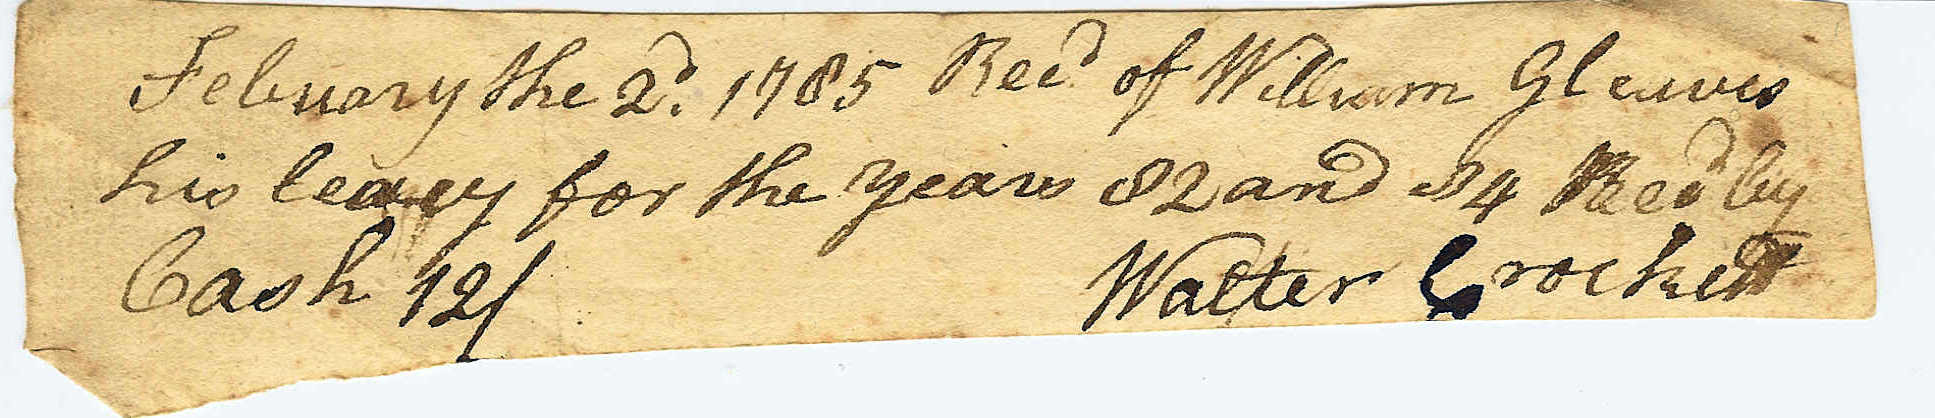 Febuary the 2d. 1785 Recd of William Gleaves
his leavy for the years 82 and 84 Recd by
Cash 12/ Walter Crockett